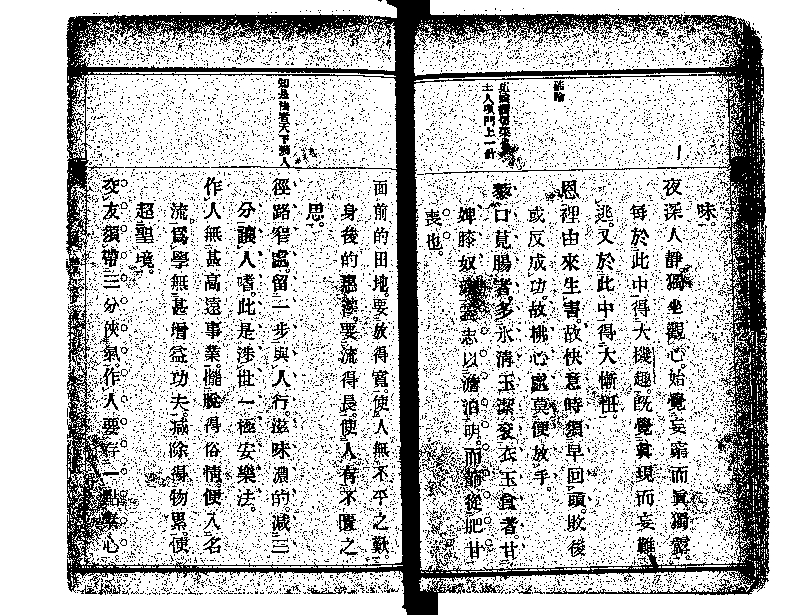 味
夜深人靜獨坐觀心。始覺妄窮而眞獨露。
每於此中得大機趣。旣覺眞現而妄難
逃。又於此中得大慚忸。
恩裡由來生害。故快意時須早回頭。敗後
或反成功。故拂心處莫便放手。
藜口莧腸者。多氷淸玉潔。袞衣玉食者。甘
婢膝奴顏。蓋志以澹泊明。而節從肥甘
喪也。
面前的田地。要放得寬。使人無不平之歎。
身後的惠澤。要流得長。使人有不匱之
思。
徑路窄處。留一步與人行。滋味濃的。減三
分讓人嗜。此是涉世一極安樂法。
作人無甚高遠事業。擺脫得俗情。便入名
流。爲學無甚增益功夫。減除得物累。便
超聖境。
交友須帶三分俠氣。作人要存一點素心